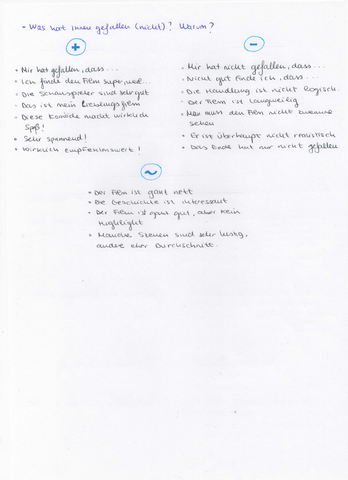 - Was hat Ihnen gefallen (nicht)? Warum?
+
• Mir hat gefallen, dass...
• Ich finde den Film super, weil...
• Die Schauspieler sind sehr gut
• Das ist mein Lieblingsfilm
• Diese Komödie macht wirklich
Spaß!
• Sehr spannend!
• Wirklich empfehlenswert!
-
• Mir hat nicht gefallen, dass...
• Nicht gut finde ich, dass...
• Die Handlung ist nicht logisch.
• Der Film ist langweilig
• Man muss den Film nicht
sehen
• Er ist überhaupt nicht realistisch
• Das Ende hat mir nicht gefallen
~
• Der Film ist ganz nett
• Die Geschichte ist interessant
• Der Film ist ganz gut, aber kein
Highlight
• Manche Szenen sind sehr lustig,
andre eher Durchschnitt.